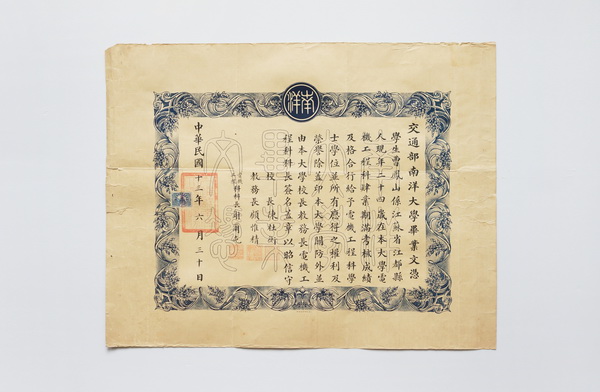 南洋
交通部南洋大學畢業文憑
學生曹鳳山係江蘇省江都縣
人現年二十四歲在本大學電
機工程科肄業期滿考核成績
及格合行給予電機工程科學
士學位並所有應得之權利及
榮譽除蓋印本大學關防外並
由本大學校長教務長電機工
程科科長簽名蓋章以昭信守
校長陳杜衡
教務長顧惟精
科長謝爾屯
中華民國十三年六月三十日